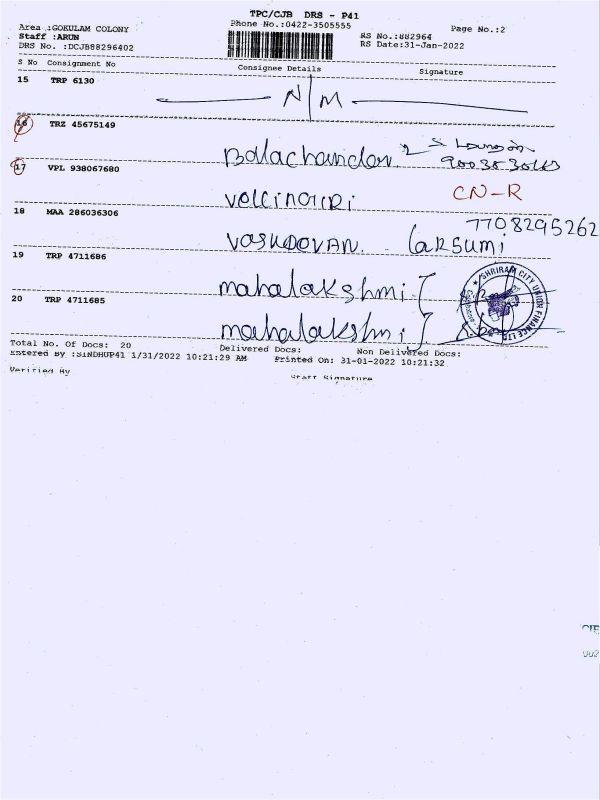 TPC/CJB DRS - P41
Area :GOKULAM COLONY Phone No.:0422-3505555 Page No.:2
Staff :ARUN RS No.:882964
DRS No. :DCJB88296402 RS Date:31-Jan-2022
S No Consignment No Consignee Details Signature
15 TRP 6130
N/M
16 TRZ 45675149
Balachandar
17 VPL 938067680
CN-R
18 MAA 286036306 7708295262
VASUDOVAN
19 TRP 4711686
mahalakshmi
20 TRP 4711685
mahalakshmi
SHRIRAM CITY UNION FINANCE LTD
Total No. Of Docs: 20 Delivered Docs: Non Delivered Docs:
Entered By :SINDHUP41 1/31/2022 10:21:29 AM Printed On: 31-01-2022 10:21:32
Verified By Staff Signature